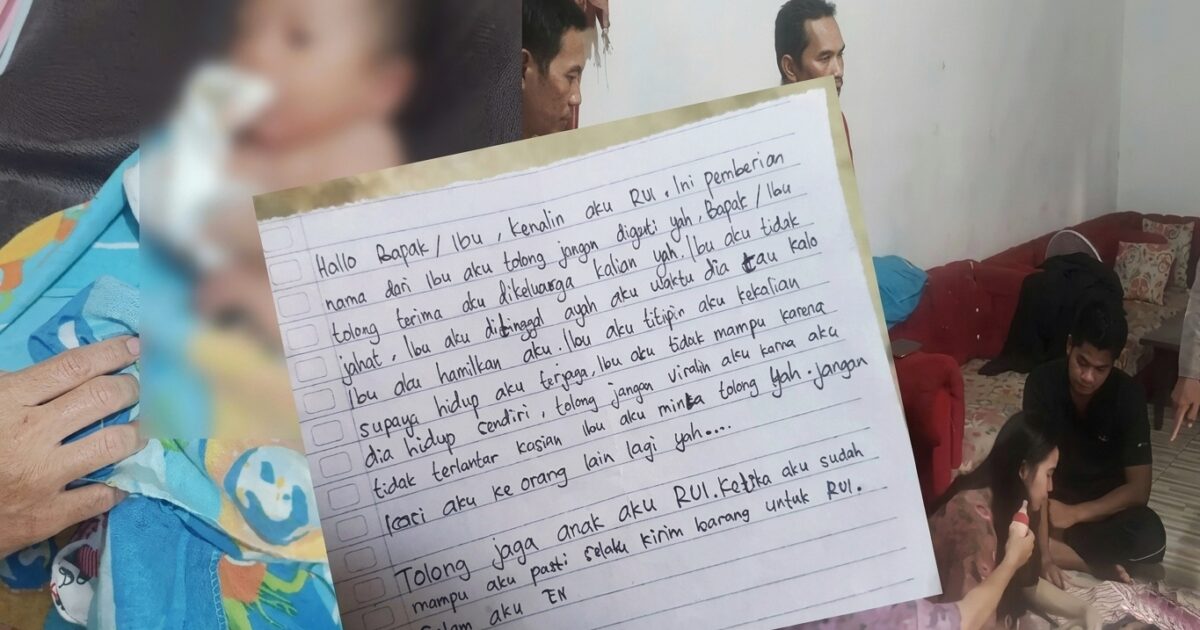 Hallo Bapak/Ibu, kenalin aku RUI. Ini pemberian
nama dari Ibu aku tolong jangan diganti yah, Bapak/Ibu
tolong terima aku dikeluarga kalian yah. Ibu aku tidak
jahat, Ibu aku ditinggal ayah aku waktu dia tau kalo
Ibu aku hamilkan aku. Ibu aku titipin aku kekalian
supaya hidup aku terjaga, Ibu aku tidak mampu karena
dia hidup sendiri, tolong jangan viralin aku karna aku
tidak terlantar kasian Ibu aku minta tolong yah. jangan
kasi aku ke orang lain lagi yah....
Tolong jaga anak aku RUI. Ketika aku sudah
mampu aku pasti selalu kirim barang untuk RUI.
Salam aku EN